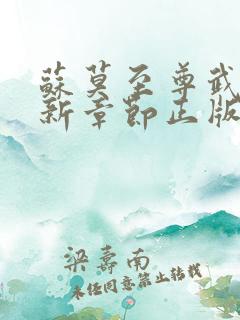 蘇莫至尊武
新章節正版
梁壽南
未經同意禁止轉載